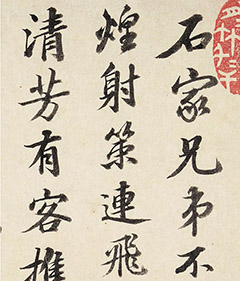 石家兄弟不
煌射策連飛
清芳有客推